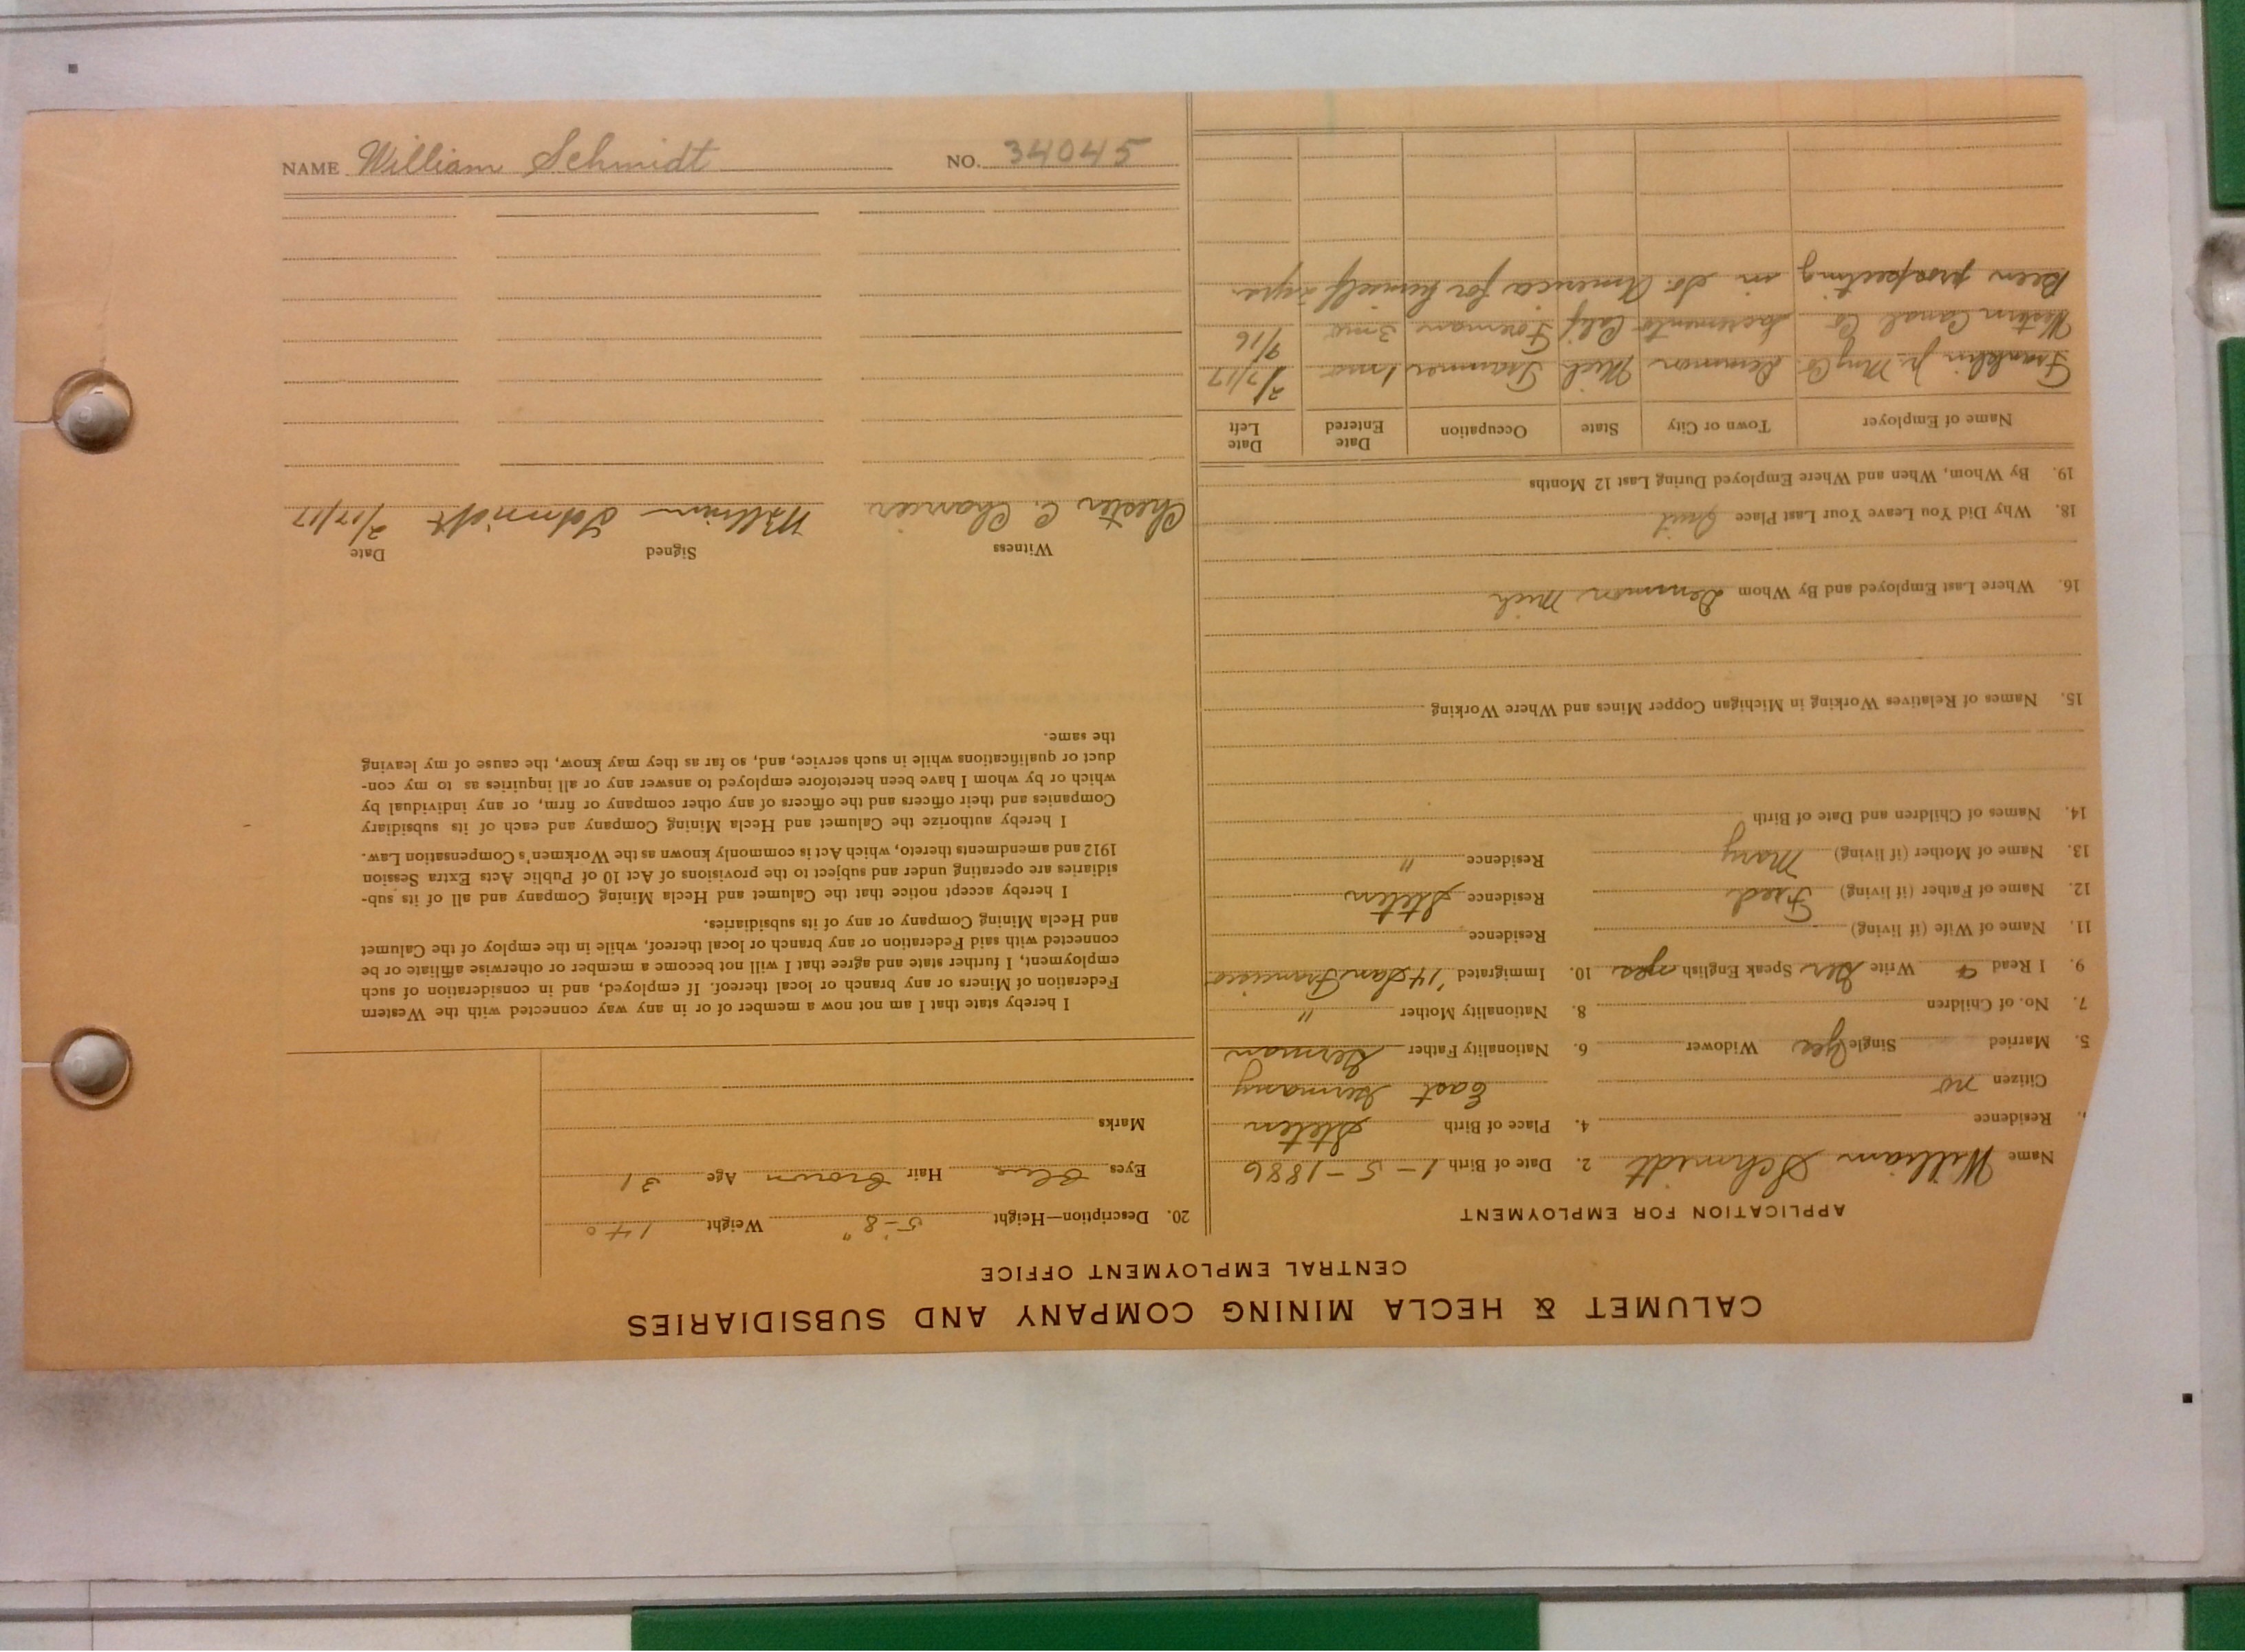 CALUMET & HECLA MINING COMPANY AND SUBSIDIARIES
CENTRAL EMPLOYMENT OFFICE
APPLICATION FOR EMPLOYMENT
Name William Schmidt 2. Date of Birth 1-5-1886
Residence 4. Place of Birth Stetin
Citizen no East Germany
5. Married Single Yes Widower 6. Nationality Father German
7. No. of Children 8. Nationality Mother "
9. I Read & Write Ger Speak English yes 10. Immigrated '14 San Francisco
11. Name of Wife (if living) Residence
12. Name of Father (if living) Fred Residence Stetin
13. Name of Mother (if living) Mary Residence "
14. Names of Children and Date of Birth
15. Names of Relatives Working in Michigan Copper Mines and Where Working
16. Where Last Employed and By Whom Demmon Mich
18. Why Did You Leave Your Last Place Quit
19. By Whom, When and Where Employed During Last 12 Months
Name of Employer Town or City State Occupation Date Entered Date Left
Franklin Jr. Mng Co. Demmon Mich Trammer 1 mo 2/7/17
Western Canal Co Sacremento Calif Foreman 3 mo 9/16
Been prospecting in So. America for himself 2 yrs
20. Description—Height 5-8" Weight 140
Eyes Blue Hair Brown Age 31
Marks
I hereby state that I am not now a member of or in any way connected with the Western
Federation of Miners or any branch or local thereof. If employed, and in consideration of such
employment, I further state and agree that I will not become a member or otherwise affiliate or be
connected with said Federation or any branch or local thereof, while in the employ of the Calumet
and Hecla Mining Company or any of its subsidiaries.
I hereby accept notice that the Calumet and Hecla Mining Company and all of its sub-
sidiaries are operating under and subject to the provisions of Act 10 of Public Acts Extra Session
1912 and amendments thereto, which Act is commonly known as the Workmen's Compensation Law.
I hereby authorize the Calumet and Hecla Mining Company and each of its subsidiary
Companies and their officers and the officers of any other company or firm, or any individual by
which or by whom I have been heretofore employed to answer any or all inquiries as to my con-
duct or qualifications while in such service, and, so far as they may know, the cause of my leaving
the same.
Witness Signed Date
Chester C. William Schmidt 2/17/17
NAME William Schmidt NO. 34045